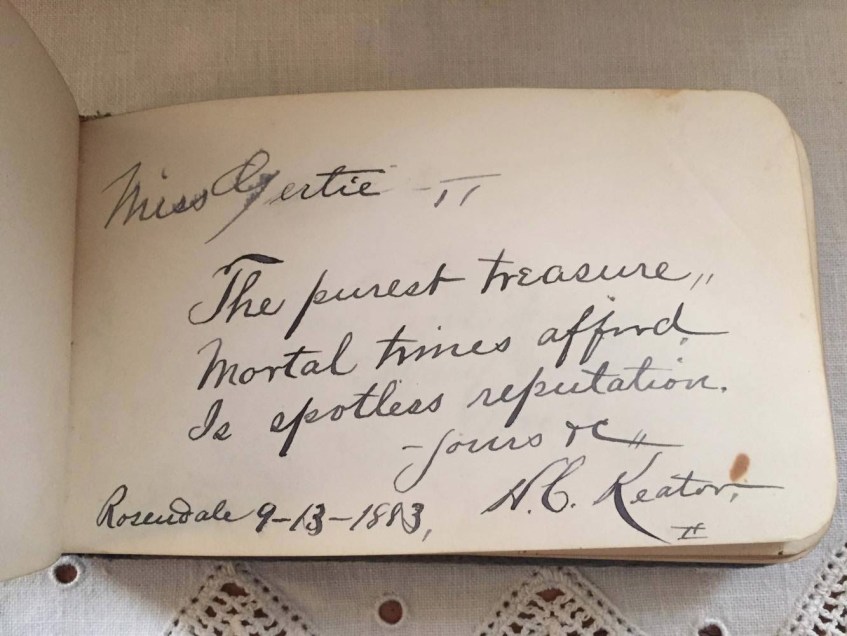 Miss Gertie
The purest treasure,,
Mortal times afford
Is spotless reputation.
-Yours &C,,
H.C. Keator,
Rosendale 9-13-1883,